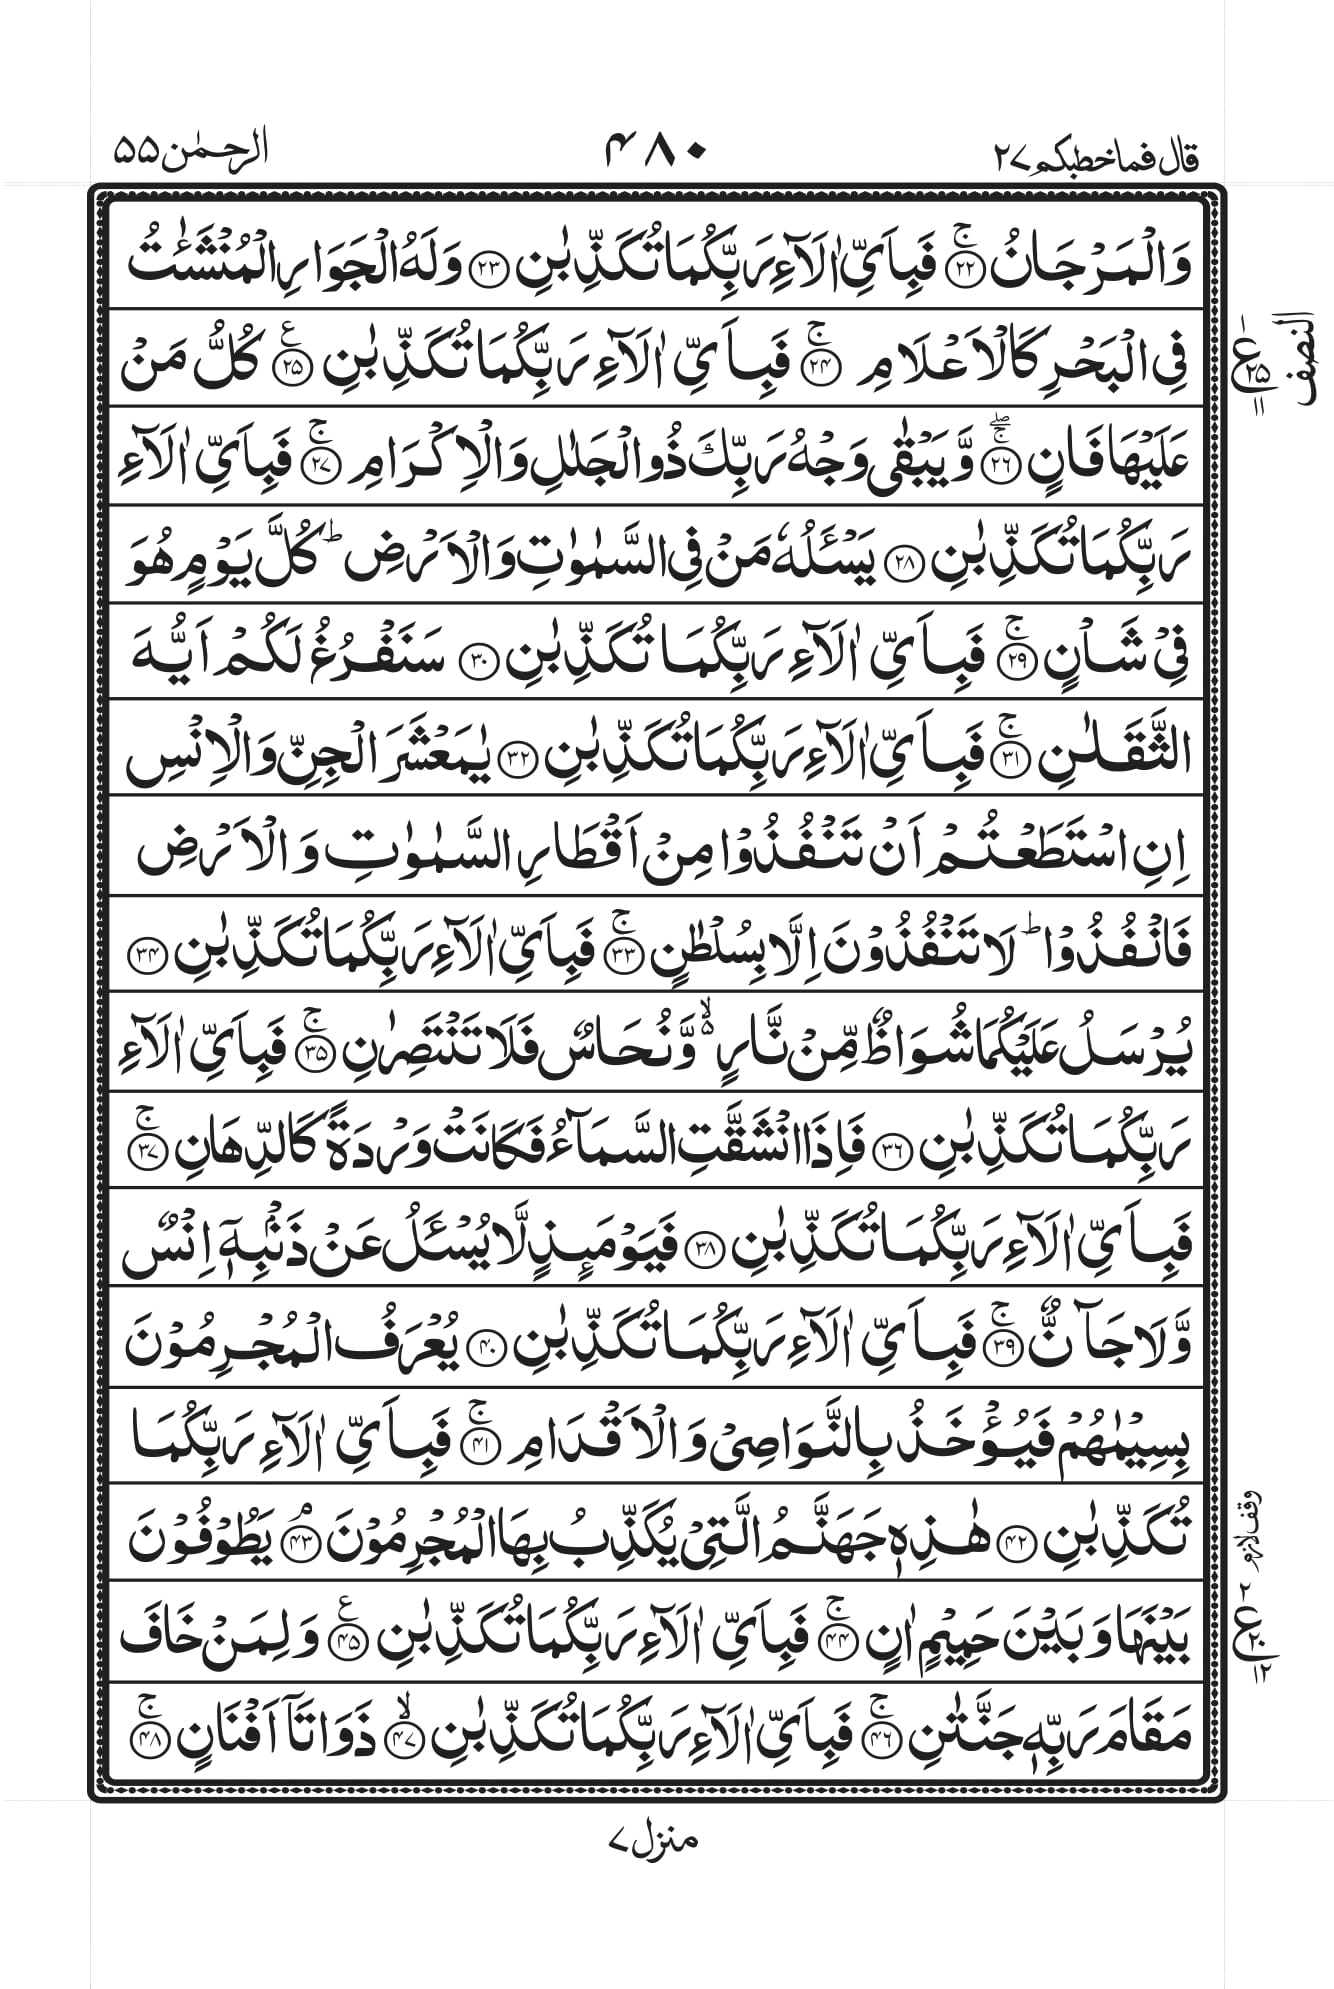 قال فما خطبكم ٢٧ ۴٨٠ الرحمٰن ٥٥
وَالْمَرْجَانُ ۚ‏﴿٢٢﴾ فَبِاَىِّ اٰلَآءِ رَبِّكُمَا تُكَذِّبٰنِ ﴿٢٣﴾ وَلَهُ الْجَوَارِ الْمُنْشَـٰٔتُ
فِى الْبَحْرِ كَالْاَعْلَامِ ۚ‏﴿٢۴﴾ فَبِاَىِّ اٰلَآءِ رَبِّكُمَا تُكَذِّبٰنِ ﴿٢٥﴾ ع كُلُّ مَنْ
النصف
ع ٢٥ ١١
عَلَيْهَا فَانٍ ۚۖ‏﴿٢٦﴾ وَّيَبْقٰى وَجْهُ رَبِّكَ ذُو الْجَلٰلِ وَالْاِكْرَامِ ۚ‏﴿٢٧﴾ فَبِاَىِّ اٰلَآءِ
رَبِّكُمَا تُكَذِّبٰنِ ﴿٢٨﴾ يَسْـَٔلُهٗ مَنْ فِى السَّمٰوٰتِ وَالْاَرْضِ ؕ كُلَّ يَوْمٍ هُوَ
فِىْ شَاْنٍ ۚ‏﴿٢٩﴾ فَبِاَىِّ اٰلَآءِ رَبِّكُمَا تُكَذِّبٰنِ ﴿٣٠﴾ سَنَفْرُغُ لَكُمْ اَيُّهَ
الثَّقَلٰنِ ۚ‏﴿٣١﴾ فَبِاَىِّ اٰلَآءِ رَبِّكُمَا تُكَذِّبٰنِ ﴿٣٢﴾ يٰمَعْشَرَ الْجِنِّ وَالْاِنْسِ
اِنِ اسْتَطَعْتُمْ اَنْ تَنْفُذُوْا مِنْ اَقْطَارِ السَّمٰوٰتِ وَالْاَرْضِ
فَانْفُذُوْا ؕ لَا تَنْفُذُوْنَ اِلَّا بِسُلْطٰنٍ ۚ‏﴿٣٣﴾ فَبِاَىِّ اٰلَآءِ رَبِّكُمَا تُكَذِّبٰنِ ﴿٣۴﴾
يُرْسَلُ عَلَيْكُمَا شُوَاظٌ مِّنْ نَّارٍ ۙ۬ وَّنُحَاسٌ فَلَا تَنْتَصِرٰنِ ۚ‏﴿٣٥﴾ فَبِاَىِّ اٰلَآءِ
رَبِّكُمَا تُكَذِّبٰنِ ﴿٣٦﴾ فَاِذَا انْشَقَّتِ السَّمَآءُ فَكَانَتْ وَرْدَةً كَالدِّهَانِ ۚ‏﴿٣٧﴾
فَبِاَىِّ اٰلَآءِ رَبِّكُمَا تُكَذِّبٰنِ ﴿٣٨﴾ فَيَوْمَئِذٍ لَّا يُسْـَٔلُ عَنْ ذَنْۢبِهٖۤ اِنْسٌ
وَّلَا جَآنٌّ ۚ‏﴿٣٩﴾ فَبِاَىِّ اٰلَآءِ رَبِّكُمَا تُكَذِّبٰنِ ﴿۴٠﴾ يُعْرَفُ الْمُجْرِمُوْنَ
بِسِيْمٰهُمْ فَيُؤْخَذُ بِالنَّوَاصِىْ وَالْاَقْدَامِ ۚ‏﴿۴١﴾ فَبِاَىِّ اٰلَآءِ رَبِّكُمَا
تُكَذِّبٰنِ ﴿۴٢﴾ هٰذِهٖ جَهَنَّمُ الَّتِىْ يُكَذِّبُ بِهَا الْمُجْرِمُوْنَ ۘ‏﴿۴٣﴾ يَطُوْفُوْنَ
وقف لازم
بَيْنَهَا وَبَيْنَ حَمِيْمٍ اٰنٍ ۚ‏﴿۴۴﴾ فَبِاَىِّ اٰلَآءِ رَبِّكُمَا تُكَذِّبٰنِ ﴿۴٥﴾ ع وَلِمَنْ خَافَ
٢ ع ٢٠ ١٢
مَقَامَ رَبِّهٖ جَنَّتٰنِ ۚ‏﴿۴٦﴾ فَبِاَىِّ اٰلَآءِ رَبِّكُمَا تُكَذِّبٰنِ ۙ‏﴿۴٧﴾ ذَوَاتَاۤ اَفْنَانٍ ۚ‏﴿۴٨﴾
منزل ٧